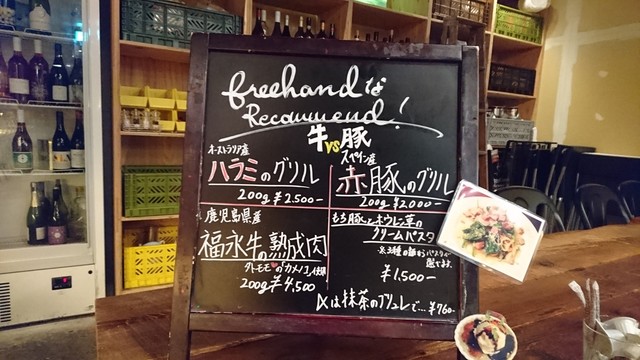 freehandな
Recommend!
牛vs豚
オーストラリア産
ハラミのグリル
200g ¥2.500-
スペイン産
赤豚のグリル
200g ¥2.000-
鹿児島県産
福永牛の熟成肉
外モモの"カメノコ"
200g ¥4,500
もち豚とホウレン草の
クリームパスタ
※3種の麺からパスタが
選べます。
¥1,500-
〆は抹茶のブリュレで…¥760-